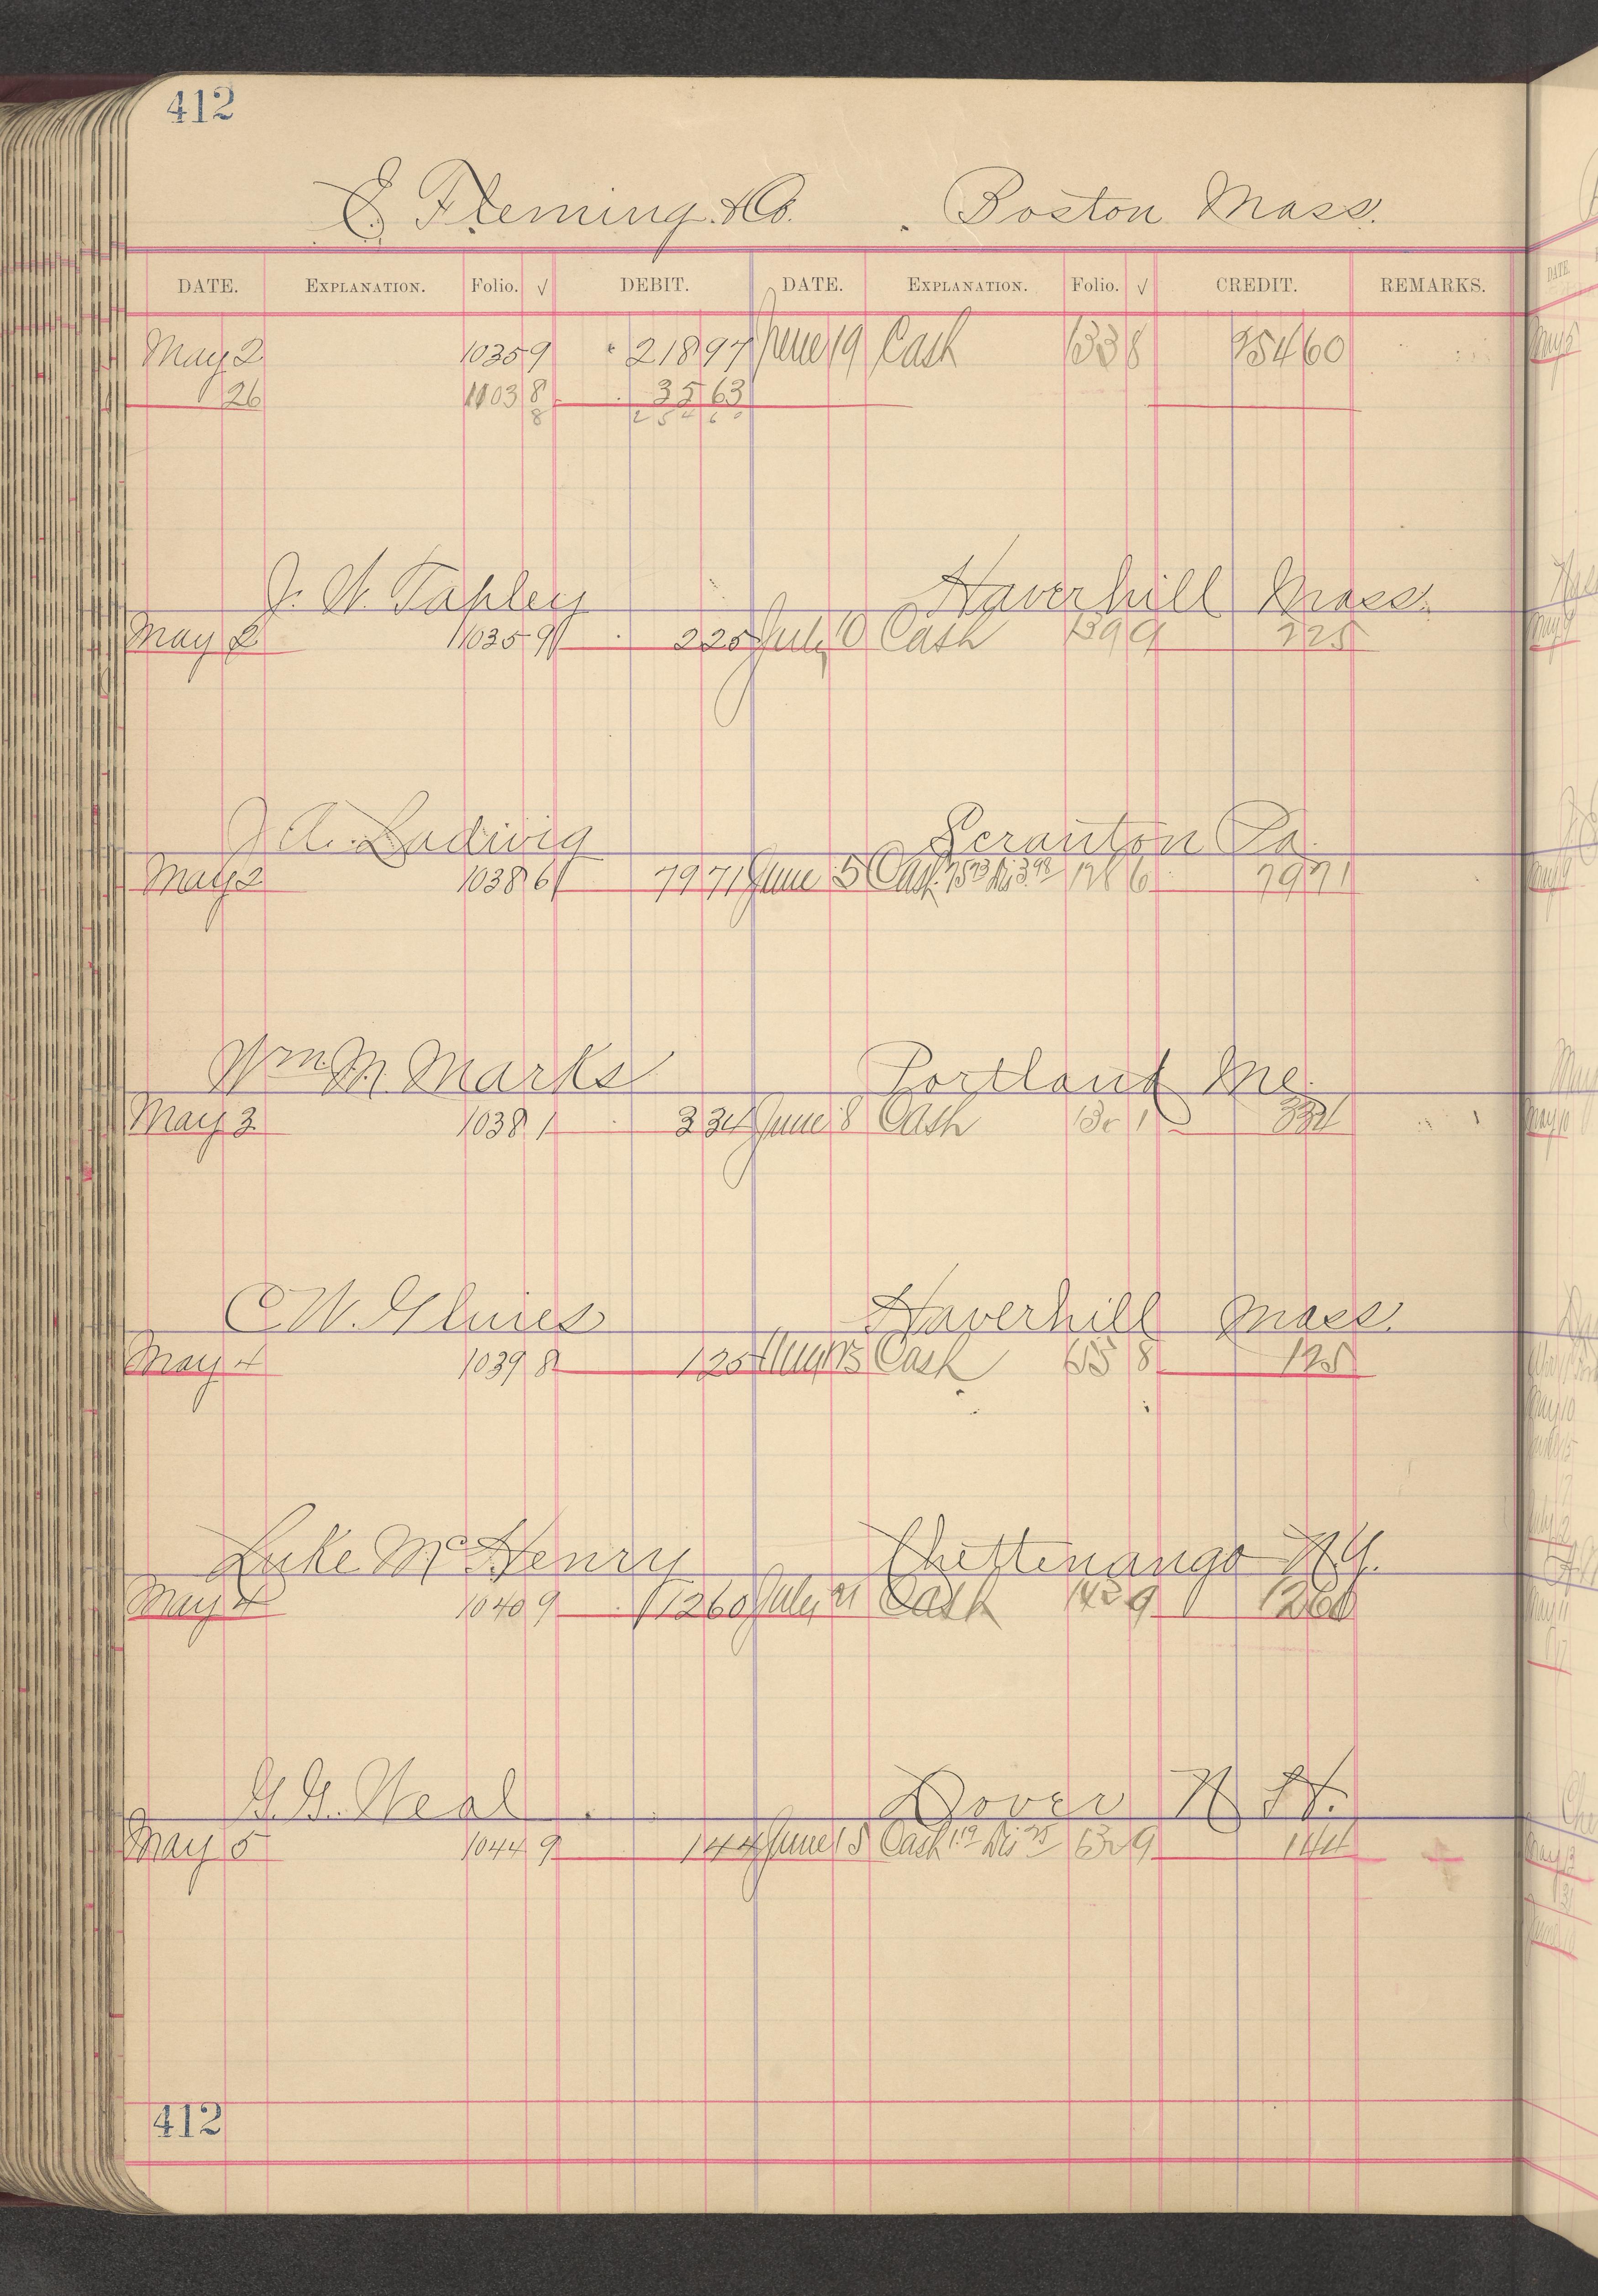 412
E. Fleming & Co. Boston Mass.
DATE. EXPLANATION. Folio. √ DEBIT. DATE. EXPLANATION. Folio. √ CREDIT. REMARKS.
May 2 10359 218 97 June 19 Cash 1338 254 60
26 11038 35 63
8 254 60
J. W. Tapley Haverhill Mass.
May 2 10359 2 25 July 10 Cash 1399 2 25
J. A. Ludwig Scranton Pa.
May 2 10386 79 71 June 5 Cash 75 73 Dis 3 98 1286 79 71
Wm. M. Marks Portland Me.
May 3 10381 3 34 June 8 Cash 3 34
C. W. Glines Haverhill Mass.
May 4 10398 1 25 Aug Cash 1 25
Luke McHenry Chittenango N.Y.
May 4 10409 12 60 July 21 Cash 1429 12 60
G. G. Neal Dover N H.
May 5 10449 1 44 June 15 Cash Dis 1 44
412